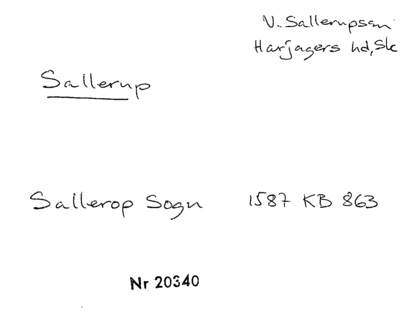 V. Sallerupsan
Harjagers hd, Sk
Sallerup
Sallerop Sogn 1587 KB 863
Nr 20340